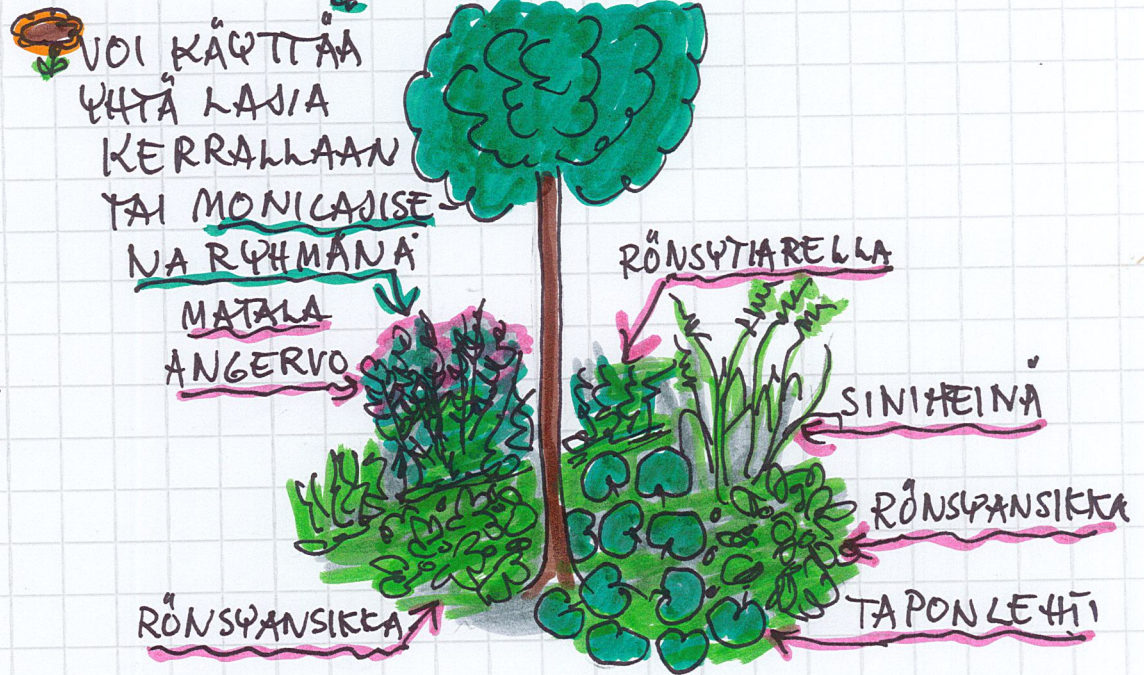 VOI KÄYTTÄÄ
YHTÄ LAJIA
KERRALLAAN
TAI MONILAJISE-
NA RYHMÄNÄ
MATALA
ANGERVO
RÖNSYTIARELLA
SINIHEINÄ
RÖNSYANSIKKA
TAPONLEHTI
RÖNSYANSIKKA